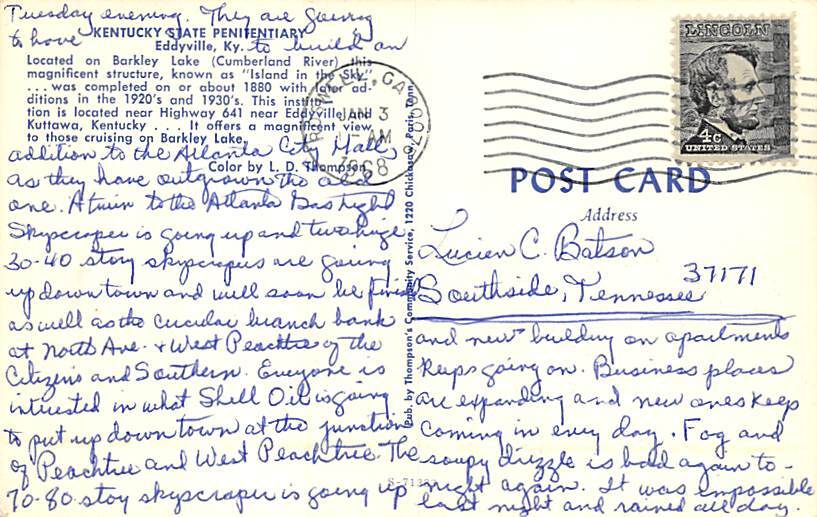 Tuesday evening. They are going
to have
KENTUCKY STATE PENITENTIARY
Eddyville, Ky.
to build an
Located on Barkley Lake (Cumberland River) this
magnificent structure, known as "Island in the Sky"
... was completed on or about 1880 with later ad-
ditions in the 1920's and 1930's. This institu-
tion is located near Highway 641 near Eddyville and
Kuttawa, Kentucky ... It offers a magnificent view
to those cruising on Barkley Lake.
Color by L. D. Thompson
addition to the Atlanta City Hall
as they have outgrown the old
one. A twin to the Atlanta Gas Light
Skyscraper is going up and two huge
30-40 story skyscrapers are going
up downtown and will soon be finished
as well as the circular branch bank
at North Ave. & West Peachtree of the
Citizens and Southern. Everyone is
interested in what Shell Oil is going
to put up downtown at the junction
of Peachtree and West Peachtree. The
70-80 stoy skyscraper is going up
Pub. by Thompson's Community Service, 1220 Chickasaw, Paris, Tenn.
S-71
GA
JAN 3
AM
1968
LINCOLN
4¢
UNITED STATES
POST CARD
Address
Lucien C. Batson
Southside, Tennessee
37171
and new building on apartments
keeps going on. Business places
are expanding and new ones keep
coming in every day. Fog and
soupy drizzle is bad again to-
night again. It was impossible
last night and rained all day.